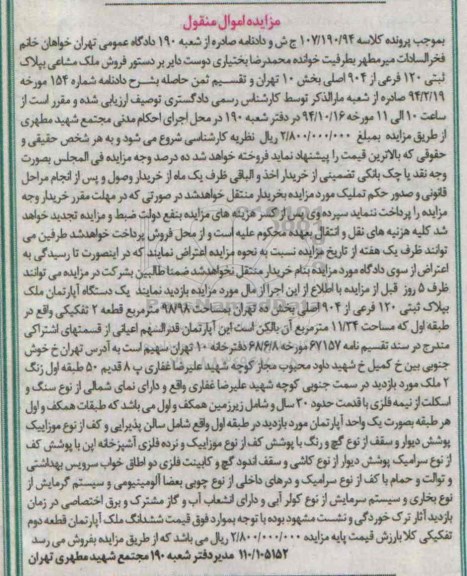 مزایده اموال منقول
بموجب پرونده کلاسه ۱۰۷/۱۹۰/۹۴ ج ش و دادنامه صادره از شعبه ۱۹۰ دادگاه عمومی تهران خواهان خانم
فخرالسادات میرمطهر بطرفیت خوانده محمدرضا بختیاری دوست دایر بر دستور فروش ملک مشاعی بپلاک
ثبتی ۱۲۰ فرعی از ۹۰۴ اصلی بخش ۱۰ تهران و تقسیم ثمن حاصله بشرح دادنامه شماره ۱۵۴ مورخه
۹۴/۲/۱۹ صادره از شعبه مارالذکر توسط کارشناس رسمی دادگستری توصیف ارزیابی شده و مقرر است از
ساعت ۱۰ الی ۱۱ مورخه ۹۴/۱۰/۱۶ در دفتر شعبه ۱۹۰ در محل اجرای احکام مدنی مجتمع شهید مطهری
از طریق مزایده بمبلغ ۲/۸۰۰/۰۰۰/۰۰۰ ریال نظریه کارشناسی شروع می شود و به هر شخص حقیقی و
حقوقی که بالاترین قیمت را پیشنهاد نماید فروخته خواهد شد ده درصد وجه مزایده فی المجلس بصورت
وجه نقد یا چک بانکی تضمینی از خریدار اخذ و الباقی ظرف یک ماه از خریدار وصول و پس از انجام مراحل
قانونی و صدور حکم تملیک مورد مزایده بخریدار منتقل خواهدشد در صورتی که در مهلت مقرر خریدار وجه
مزایده را پرداخت ننماید سپرده وی پس از کسر هزینه های مزایده بنفع دولت ضبط و مزایده تجدید خواهد
شد کلیه هزینه های نقل و انتقال بعهده محکوم علیه است و از محل فروش پرداخت خواهدشد طرفین می
توانند ظرف یک هفته از تاریخ مزایده نسبت به نحوه مزایده اعتراض نمایند که در اینصورت تا رسیدگی به
اعتراض از سوی دادگاه مورد مزایده بنام خریدار منتقل نخواهدشد ضمنا طالبین بشرکت در مزایده می توانند
ظرف ۵ روز قبل از مزایده با اطلاع از این اجرا از مال مورد مزایده بازدید نمایند یک دستگاه آپارتمان ملک
بپلاک ثبتی ۱۲۰ فرعی از ۹۰۴ اصلی بخش ده تهران بمساحت ۹۱/۹۸ مترمربع قطعه ۲ تفکیکی واقع در
طبقه اول که مساحت ۱۱/۳۴ مترمربع آن بالکن است این آپارتمان قدرالسهم اعیانی از قسمتهای اشتراکی
مندرج در سند تقسیم نامه ۶۷۱۵۷ مورخه ۶۸/۶/۸ دفترخانه ۱۰ تهران سهیم است به آدرس تهران خ خوش
جنوبی بین خ کمیل خ شهید داود محبوب مجاز کوچه شهید علیرضا غفاری پ ۸ قدیم ۵۰ طبقه اول زنگ
۲ ملک مورد بازدید در سمت جنوبی کوچه شهید علیرضا غفاری واقع و دارای نمای شمالی از نوع سنگ و
اسکلت از نیمه فلزی با قدمت حدود ۳۰ سال و شامل زیرزمین همکف و اول می باشد که طبقات همکف و اول
هر طبقه بصورت یک واحد آپارتمان مورد بازدید در طبقه اول واقع شامل سالن پذیرایی و کف از نوع موزاییک
پوشش دیوار و سقف از نوع گچ و رنگ با پوشش کف از نوع موزاییک و نرده فلزی آشپزخانه اپن با پوشش کف
از نوع سرامیک پوشش دیوار از نوع کاشی و سقف اندود گچ و کابینت فلزی دو اطاق خواب سرویس بهداشتی
و توالت و حمام با کف از نوع سرامیک و درهای داخلی از نوع چوبی بعضا آلومینیومی و سیستم گرمایش از
نوع بخاری و سیستم سرمایش از نوع کولر آبی و دارای انشعاب آب و گاز مشترک و برق اختصاصی در زمان
بازدید آثار ترک خوردگی و نشست مشهود بوده با توجه بموارد فوق قیمت ششدانگ ملک آپارتمان قطعه دوم
تفکیکی کلا بارزش قیمت پایه مزایده ۲/۸۰۰/۰۰۰/۰۰۰ ریال می باشد که از طریق مزایده بفروش می رسد
۱۱۰/۱۰۵۱۵۲ مدیر دفتر شعبه ۱۹۰ مجتمع شهید مطهری تهران